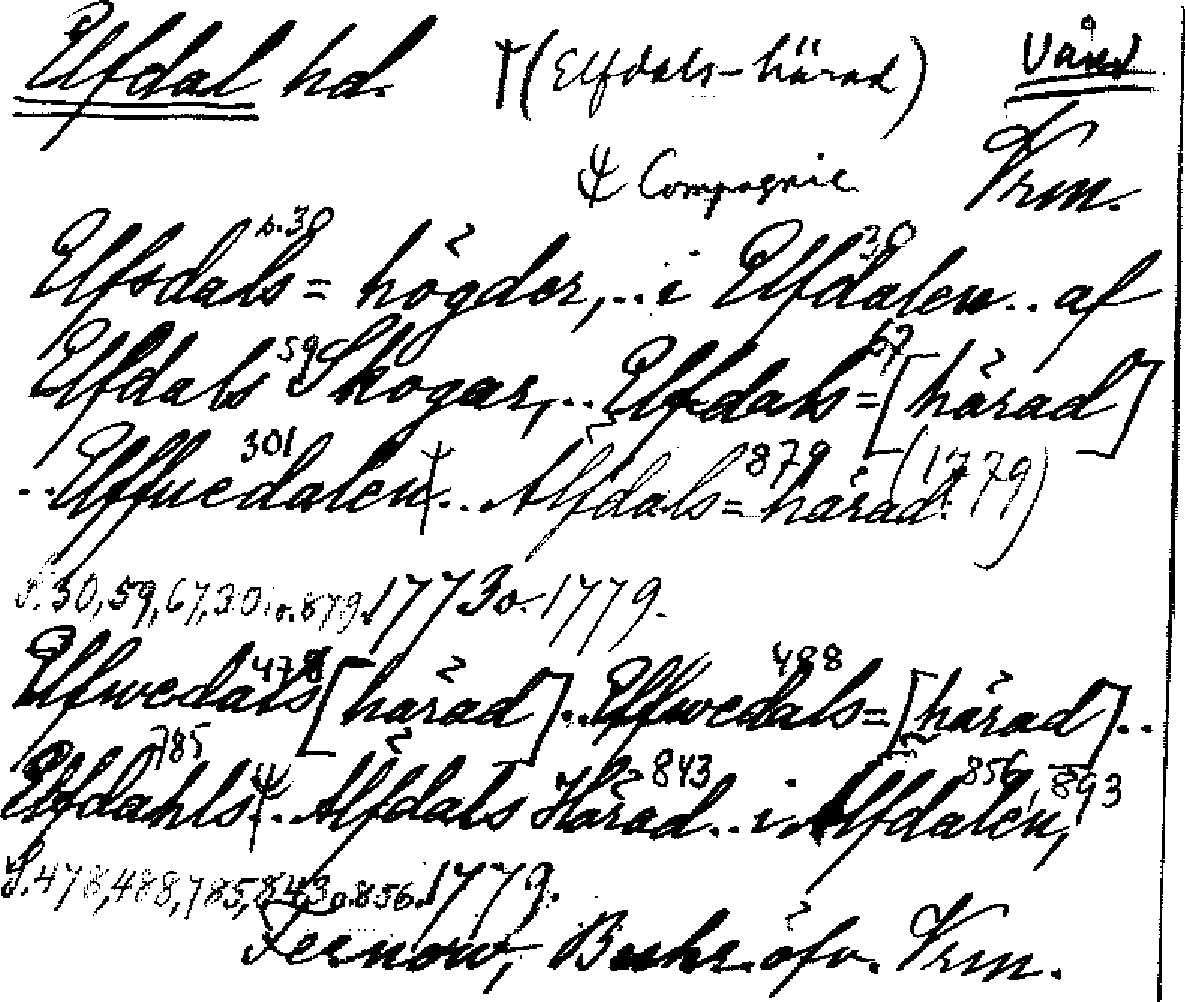 Elfdal hd. †(Elfdals-härad) Vänd
Compagnie Vrm.
Elfsdals= högder,.. i Elfdalen.. af
s.30 30
Elfdals Skogar,.. Elfdals=[härad]
59 67
..Elffuedalen.. Alfdals=härad. (1779)
301 879
S. 30, 59, 67, 301 o. 879. 1773 o. 1779.
Elfwedals [härad].. Elffwedals=[härad]..
478 488
Elfdahls.. Alfdals Härad.. i Alfdalen,
785 843 856 893
S. 478, 488, 785, 843 o. 856. 1779.
Fernow, Beskr. öfv. Vrm.